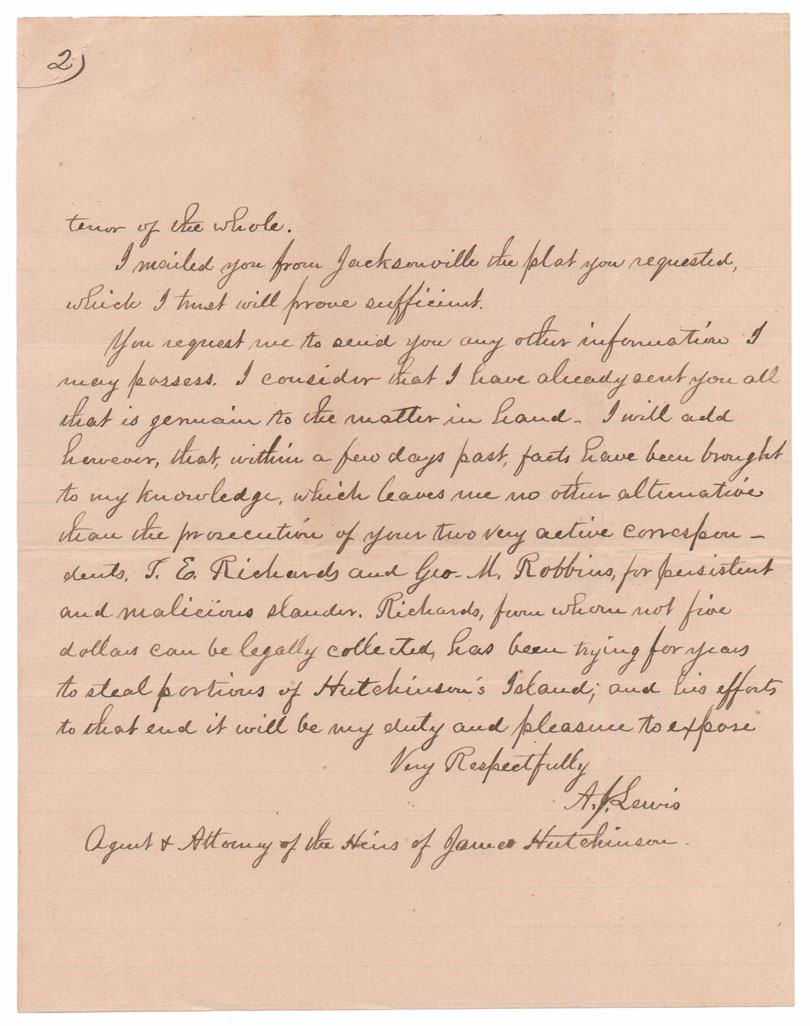 2)
tenor of the whole.
I mailed you from Jacksonville the plat you requested,
which I trust will prove sufficient.
You request me to send you any other information I
may possess. I consider that I have already sent you all
that is germain to the matter in hand - I will add
however, that, within a few days past, facts have been brought
to my knowledge, which leaves me no other alternative
than the prosecution of your two very active correspon-
dents, T. E. Richards and Geo. M. Robbins, for persistent
and malicious slander. Richards, from whom not five
dollars can be legally collected, has been trying for years
to steal portions of Hutchinson's Island; and his efforts
to that end it will be my duty and pleasure to expose
Very Respectfully
A. J. Lewis
Agent & Attorney of the Heirs of James Hutchinson.